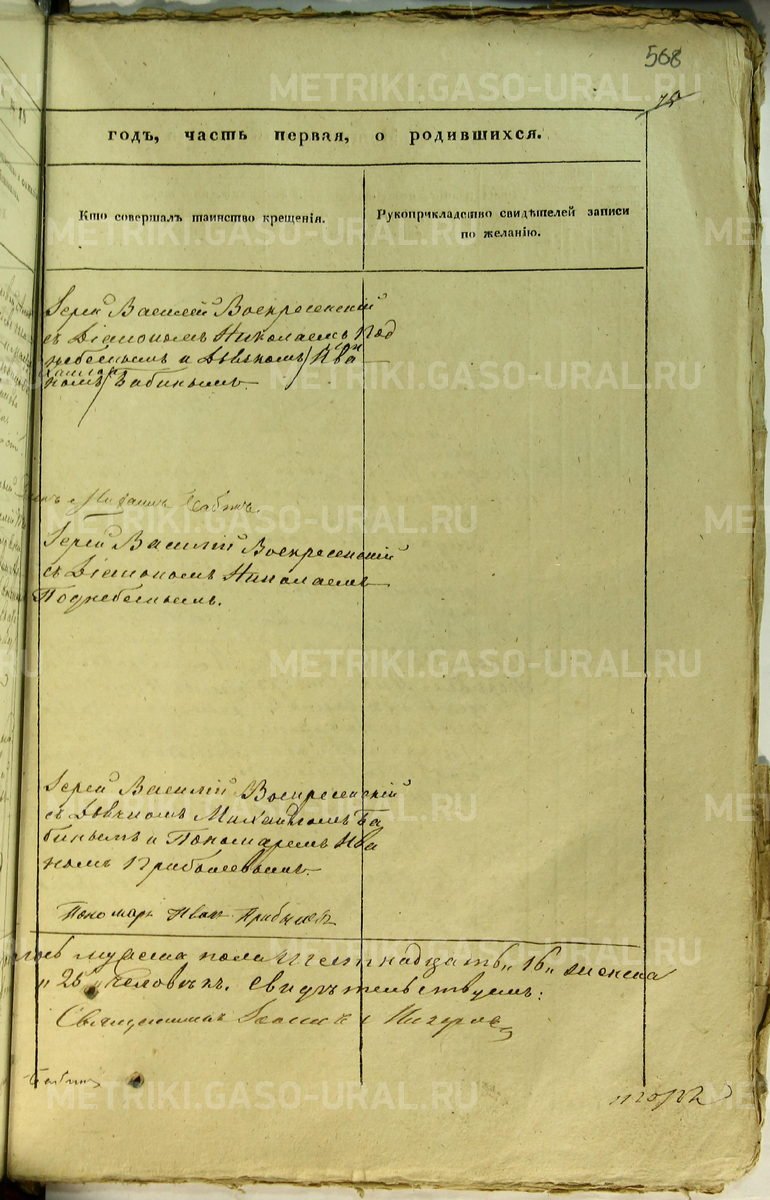 568
годъ, часть первая, о родившихся.
Кто совершалъ таинство крещенія.
Рукоприкладство свидѣтелей записи
по желанію.
Іерей Василей Воскресенскій
съ Діакономъ Николаемъ Под
небеснымъ и Дьячкомъ Ива
номъ Бабинымъ
Михаилъ Бабинъ.
Іерей Василій Воскресенскій
съ Діакономъ Николаемъ
Поднебеснымъ.
Іерей Василій Воскресенскій
съ Дьячкомъ Михаиломъ Ба
бинымъ и Пономаремъ Ива
номъ Прибылевымъ
Пономарь Иванъ Прибылевъ
мужеска пола шестнадцать „16„ женска
„25„ человѣкъ. Свидѣтельствуемъ:
Священникъ
Бабинъ
METRIKI.GASO-URAL.RU